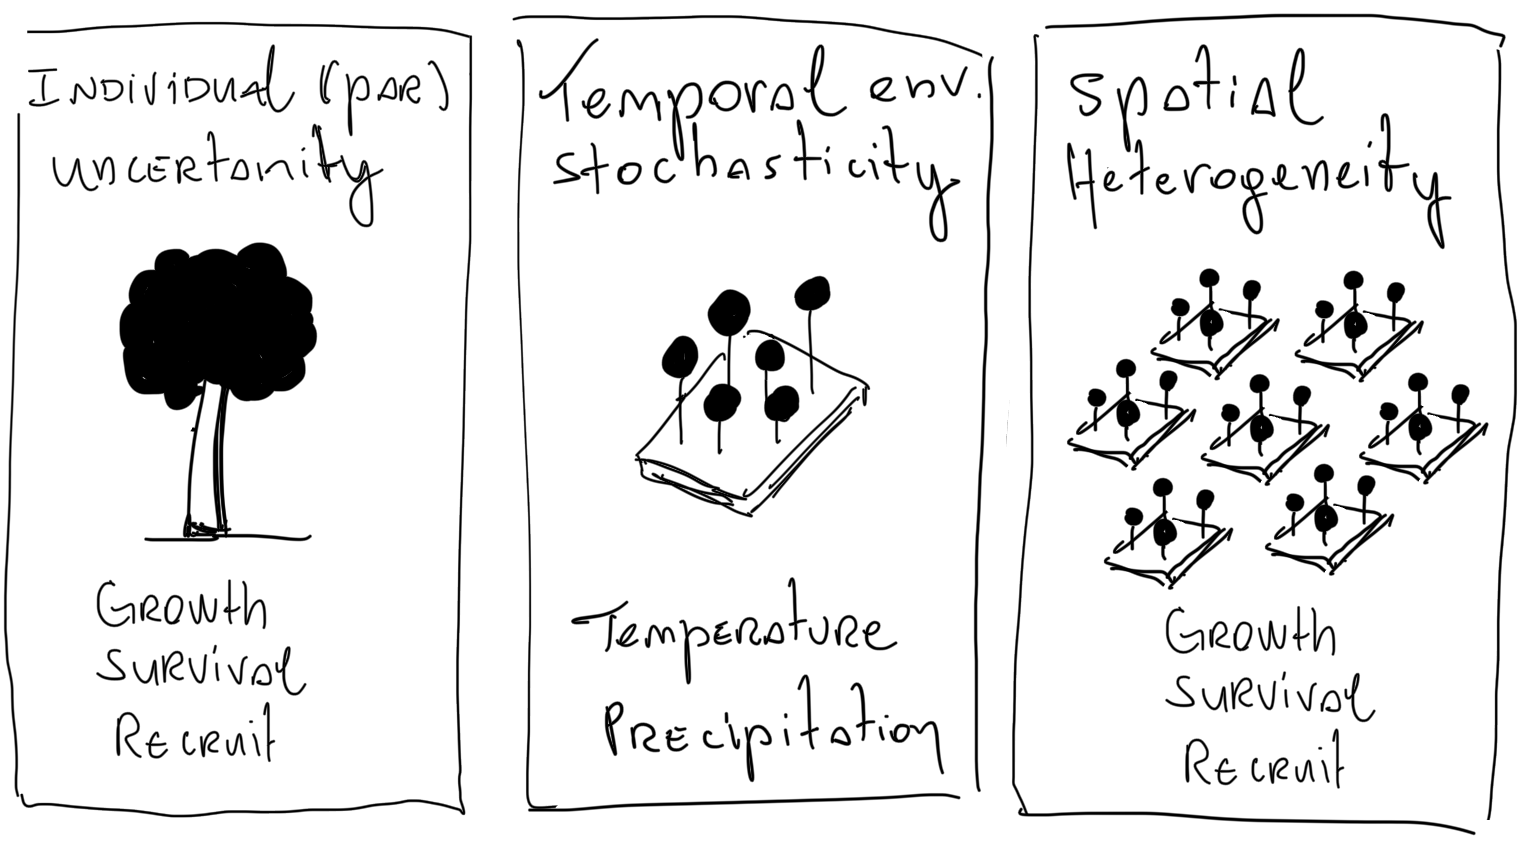 Individual (par)
uncertanity
Growth
Survival
Recruit
Temporal env.
stochasticity
Temperature
Precipitation
Spatial
Heterogeneity
Growth
Survival
Recruit